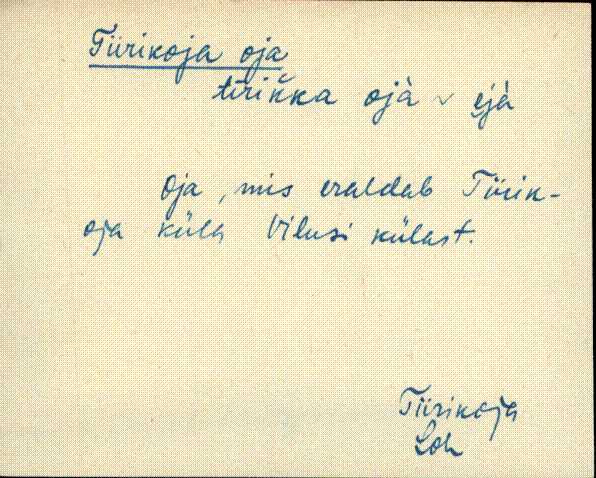 Tiirikoja oja
tiriќka ojà ~ ejà
Oja, mis eraldab Tiirik-
oja küla Vilusi külast.
Tiirikoja
Loh